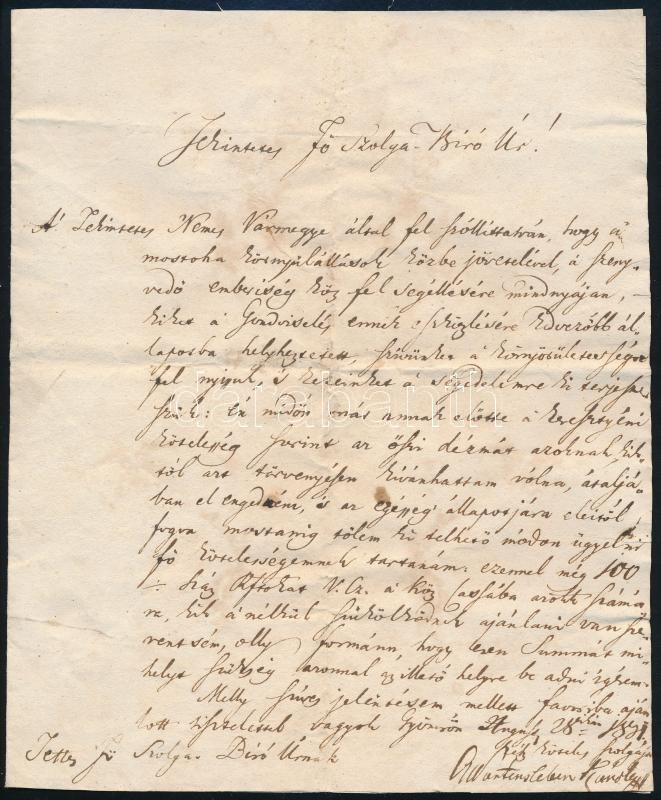 Tekintetes Fő Szolga-Biró Úr!
A' Tekintetes Nemes Vármegye által fel szóllittatván, hogy a'
mostoha környülállások közbe jövetelével, a' szeny-
vedő emberiség köz fel segéllésére mindnyájan, –
kiket a' Gondviselés ennek eszközlésére kedvezőbb ál-
lapotba helyheztetett, szivünket a' könyörületességre
fel nyissuk, 's kezeinket a' segedelemre ki terjesz-
szük: Én midőn más annak előtte a' keresztyéni
kötelesség szerint az őszi dézmát azoknak, kik-
től azt törvényesen kivánhattam vólna, átaljá-
ban el engedném, és az egésség állapotjára eleitől
fogva mostanig tőlem ki telhető módon ügyelni
fő kötelességemnek tartanám: ezennel még 100
Száz ftokat V. Cz. a' köz cassába azok számá
ra, kik a' nélkül szükölködnek ajánlani van sze-
rentsém, olly formánn, hogy ezen Summát mi-
helyt szükség azonnal az illető helyre be adni igérem.
Melly szives jelentésem mellett favorba aján
lott tisztelettel vagyok Gyömrőn August 28 1831
kötelес szolgája
Tettes Fő Szolga Biró Úrnak
Wartensleben Károly
databanth